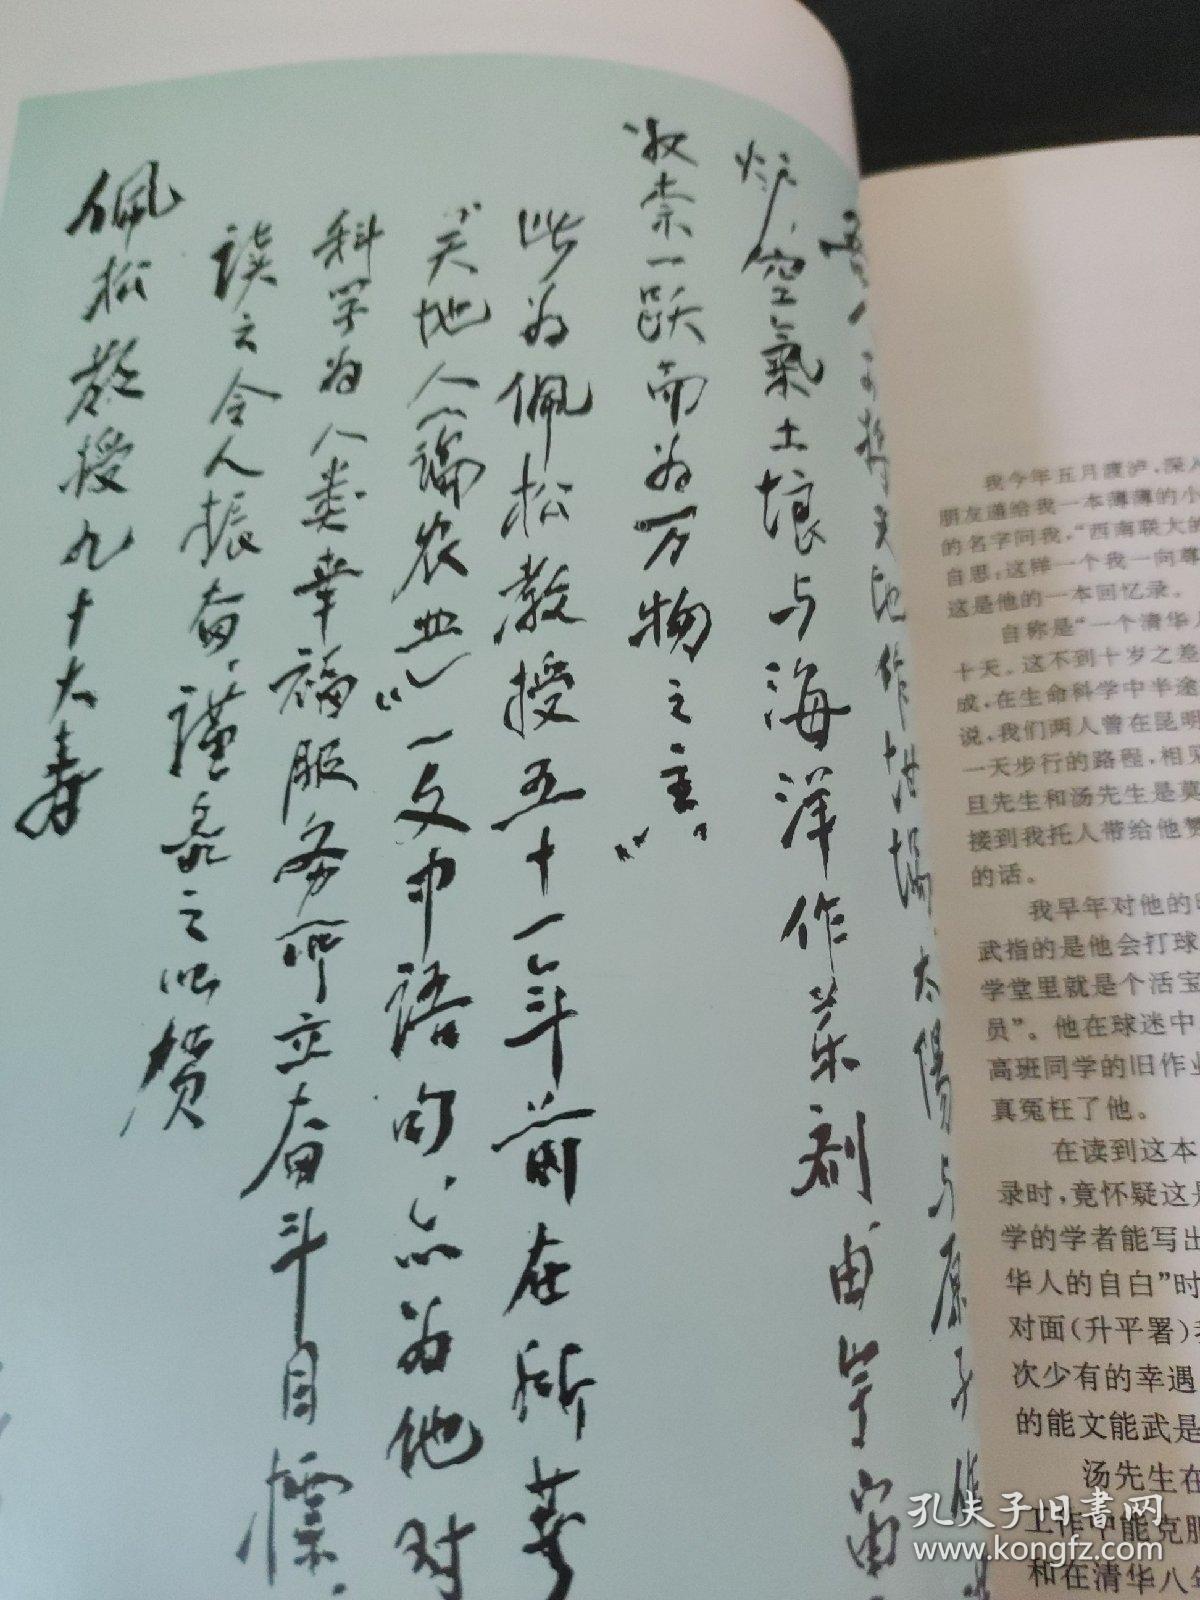 可将天地作椹埸、太陽与原子作
炉、空氣土壤与海洋作菜刹由宇宙
收索一跃而为万物之主”
此为佩松教授五十一年前在所著
“天地人（論农业）”一文中語句、亦为他对
科学为人类幸福服务所立奋斗目標、
读之令人振奋、謹录之以贺
佩松教授九十大寿
我今年五月渡泸，深入
朋友递给我一本薄薄的小
的名字问我，“西南联大的
自思：这样一个我一向尊
这是他的一本回忆录。
自称是“一个清华人
十天。这不到十岁之差
成，在生命科学中半途
说，我们两人曾在昆明
一天步行的路程，相见
且先生和汤先生是莫
接到我托人带给他赞
的话。
我早年对他的印
武指的是他会打球
学堂里就是个活宝
员”。他在球迷中
高班同学的旧作业
真冤枉了他。
在读到这本
录时，竟怀疑这是
学的学者能写出
华人的自白”时
对面（升平署）
次少有的幸遇
的能文能武是
汤先生在
工作中能克服
和在清华八年
孔夫子旧書网
www.kongfz.com